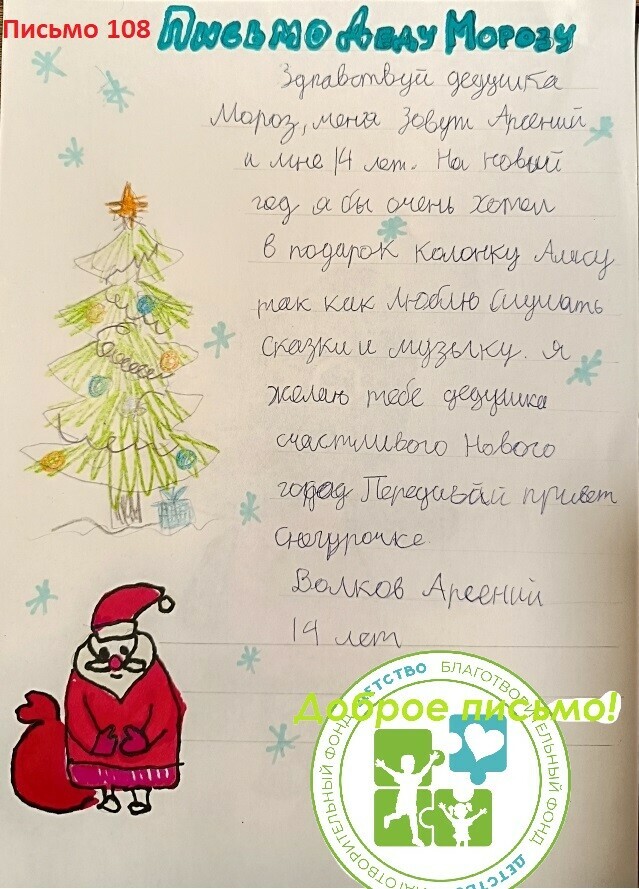 Письмо 108
Письмо Деду Морозу
Здравствуй дедушка
Мороз, меня зовут Арсений
и мне 14 лет. На новый
год я бы очень хотел
в подарок колонку Алису
так как люблю слушать
сказки и музыку. я
желаю тебе дедушка
счастливого Нового
года Передавай привет
Снегурочке.
Волков Арсений
14 лет
Доброе письмо!
БЛАГОТВОРИТЕЛЬНЫЙ ФОНД ДЕТСТВО БЛАГОТВОРИТЕЛЬНЫЙ ФОНД ДЕТСТВО